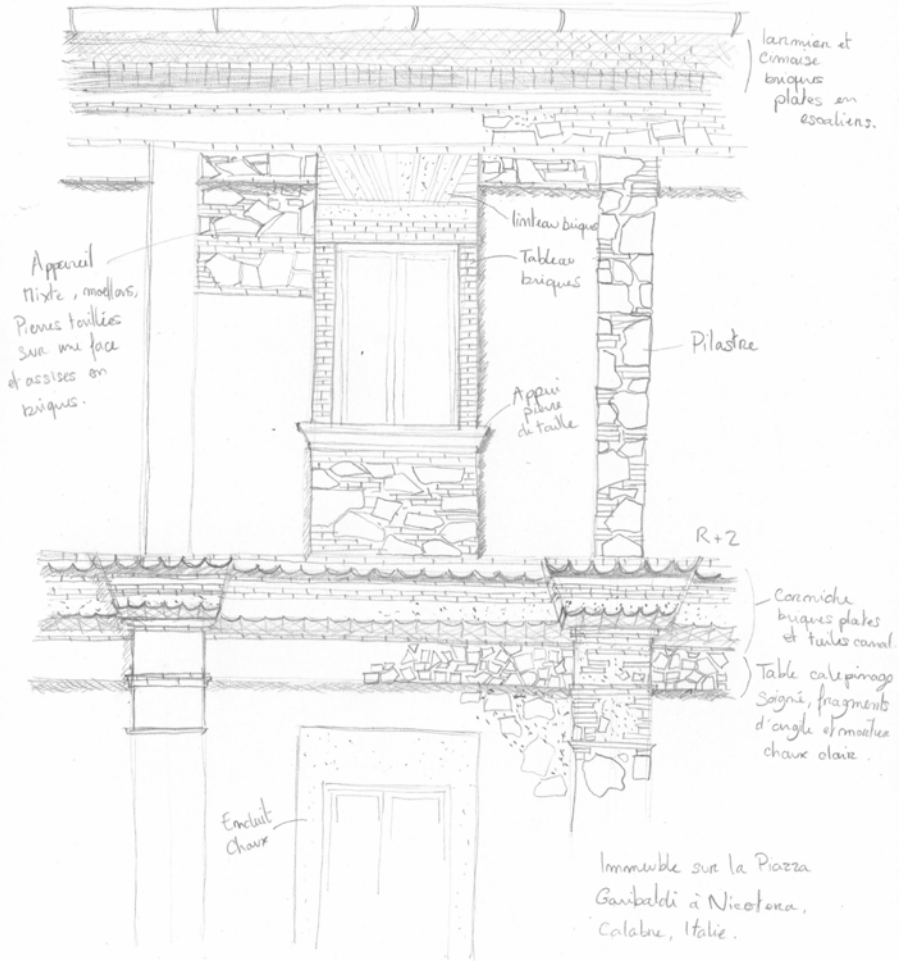 larmier et
cimaise
briques
plates en
escaliers.
linteau brique
Tableau
briques
Appareil
Mixte, moellons,
Pierres taillées
sur une face
et assises en
briques.
Pilastre
Appui
pierre
de taille
R+2
Corniche
briques plates
et tuiles canal.
Table calepinage
soigné, fragments
d'argile et mortier
chaux clair.
Enduit
chaux
Immeuble sur la Piazza
Garibaldi à Nicotera,
Calabre, Italie.